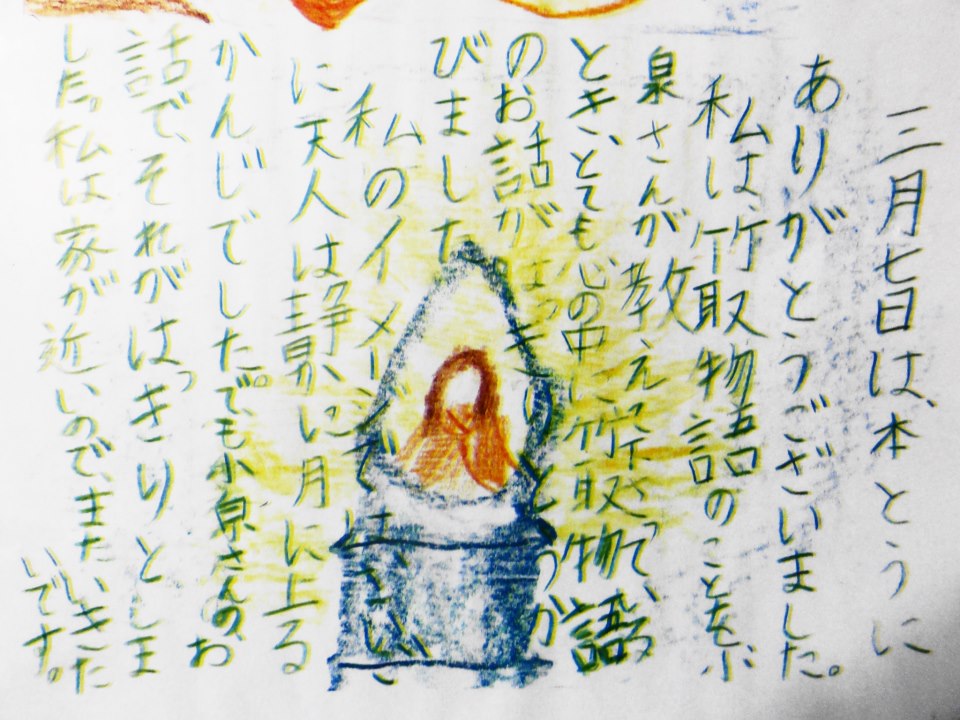 三月七日は、本とうに
ありがとうございました。
私は、竹取物語のことを小
泉さんが教えて下さっている
とき、とても心の中に竹取物語
のお話がはっきとうか
びました
私のイメージでは
に天人は静かに月に上る
かんじでした。でも小泉さんのお
話で、それがはっきりとしま
した。私は家が近いので、またいきた
いです。